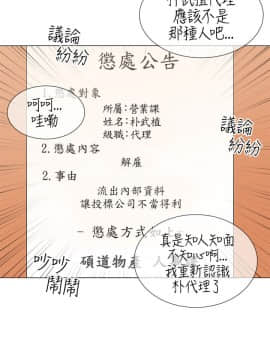 朴武植代理
應該不是
那種人吧…
議論
紛紛
懲處公告
1.懲處對象
所屬:營業課
姓名:朴武植
級職:代理
呵呵…
哇嘞
議論
紛紛
2.懲處內容
解雇
2.事由
流出內部資料
讓投標公司不當得利
- 懲處方式如上 -
真是知人知面
不知心啊…
我重新認識
朴代理了
吵吵
鬧鬧
碩道物產 人